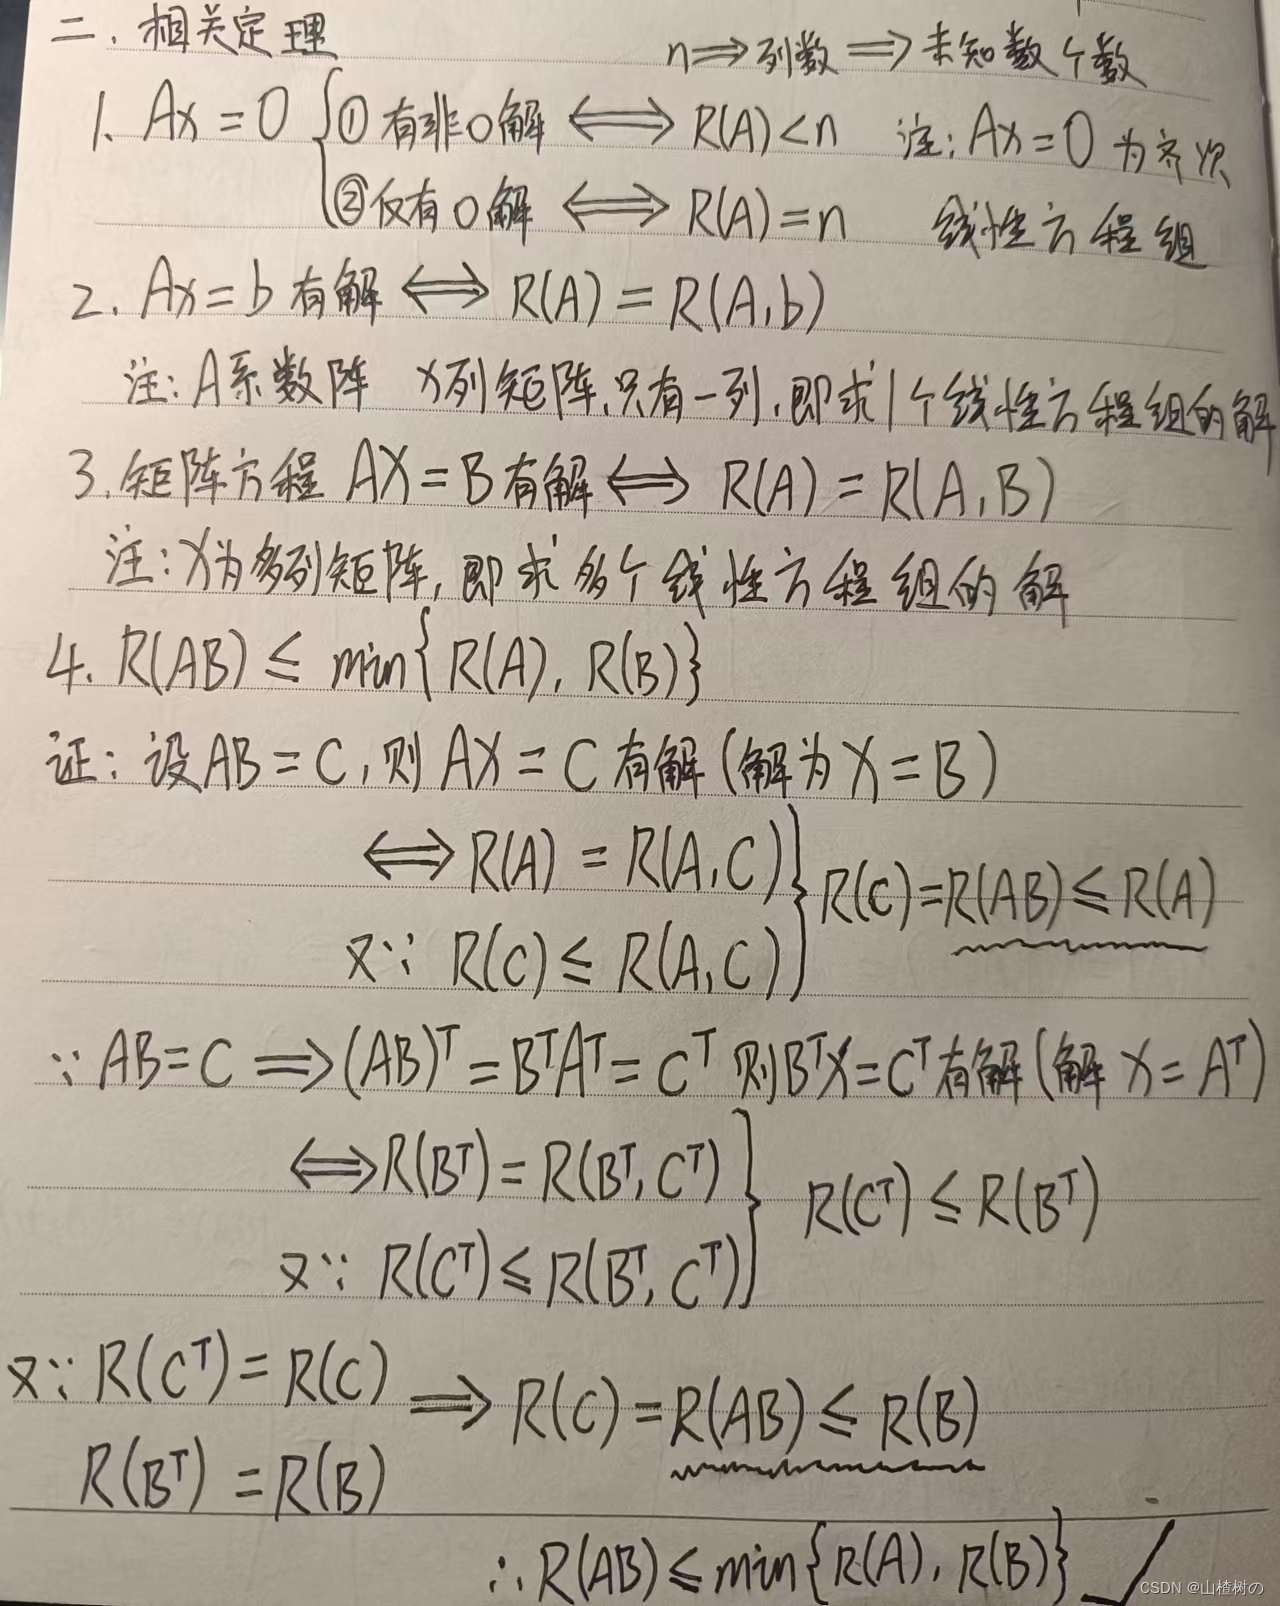 二. 相关定理
n⟹列数⟹未知数个数
1. Ax=0 { ①有非0解 ⟺ R(A)<n 注: Ax=0为齐次
②仅有0解 ⟺ R(A)=n 线性方程组
2. Ax=b有解 ⟺ R(A)=R(A,b)
注: A系数阵 x列矩阵,只有一列,即求1个线性方程组的解
3. 矩阵方程 AX=B有解 ⟺ R(A)=R(A,B)
注: X为多列矩阵, 即求多个线性方程组的解
4. R(AB) ≤ min{R(A), R(B)}
证: 设AB=C, 则 AX=C 有解(解为X=B)
⟺ R(A)=R(A,C) } R(C)=R(AB)≤R(A)
又∵ R(C)≤R(A,C)
∵ AB=C ⟹ (AB)ᵀ=BᵀAᵀ=Cᵀ 则BᵀX=Cᵀ有解(解 X=Aᵀ)
⟺ R(Bᵀ)=R(Bᵀ,Cᵀ) } R(Cᵀ)≤R(Bᵀ)
又∵ R(Cᵀ)≤R(Bᵀ,Cᵀ)
又∵ R(Cᵀ)=R(C) ⟹ R(C)=R(AB)≤R(B)
R(Bᵀ)=R(B)
∴ R(AB)≤min{R(A), R(B)}
CSDN @山楂树の